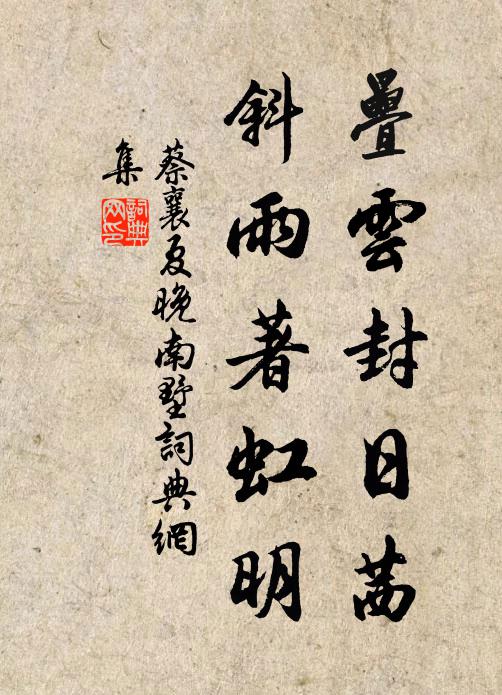 疊雲封日茜
斜雨著虹明
蔡襄夏晚南墅詞典網
集
詞典
网印